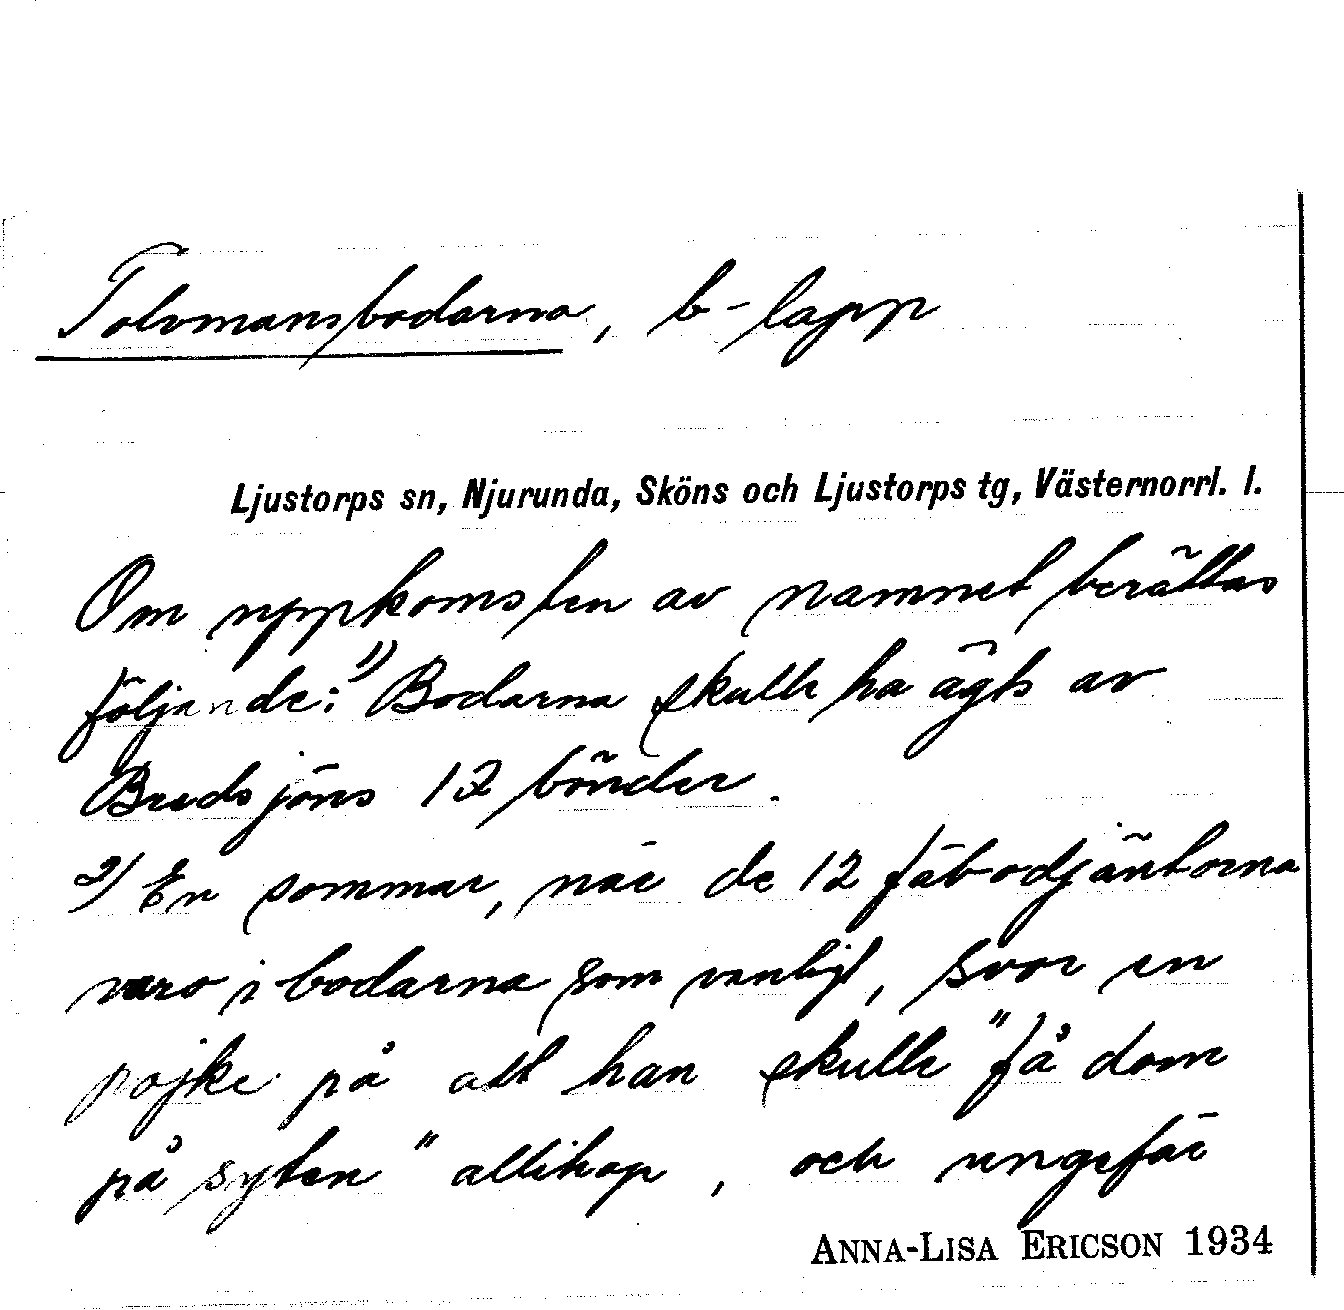 Tolvmansbodarna, b-lapp
Ljustorps sn, Njurunda, Sköns och Ljustorps tg, Västernorrl. l.
Om uppkomsten av namnet berättas
följande: 1) Bodarna skulle ha ägts av
Bredsjöns 12 bönder.
2) En sommar, när de 12 fäbodjäntorna
varo i bodarna som vanligt, svor en
pojke på att han skulle "få dom
på syten" allihop, och ungefär
ANNA-LISA ERICSON 1934